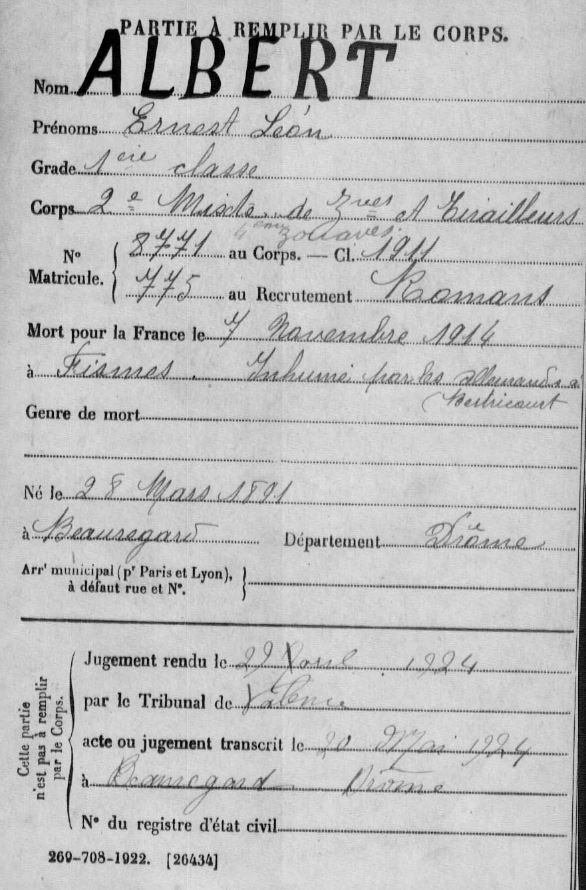 PARTIE À REMPLIR PAR LE CORPS.
Nom ALBERT
Prénoms Ernest Léon
Grade 1ère classe
Corps 2e Mixte de Zves et Tirailleurs
4eme zouaves.
N° Matricule. 8771 au Corps. — Cl. 1911
775 au Recrutement Romans
Mort pour la France le 7 Novembre 1914
à Fismes . Inhumé par les allemands à
(Berthicourt
Genre de mort
Né le 28 Mars 1891
à Beauregard Département Drôme
Arrt municipal (pr Paris et Lyon),
à défaut rue et N°.
Cette partie n'est pas à remplir par le Corps.
Jugement rendu le 29 Avril 1924
par le Tribunal de Valence
acte ou jugement transcrit le 20 Mai 1924
à Beauregard Drôme
N° du registre d'état civil
269-708-1922. [26434]